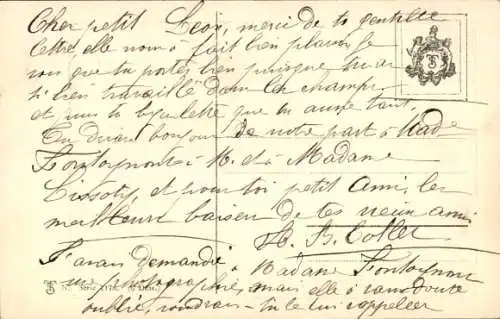 Cher petit Léon, merci de ta gentille
lettre, elle nous a fait bien plaisir. Je
vois que tu portes bien puisque tu as
si bien travaillé dans les champs
et puis ta bicyclette que tu aimes tant.
Tu diras bonjour de notre part à Made
Fontoynont à M. et à Madame
Lissoty, et pour toi petit ami, les
meilleurs baisers de tes vieux amis
B. Collet
J'avais demandé à Madame Fontoynont
une photographie, mais elle a sans doute
oublié, voudrais-tu le lui rappeler
TS
Série